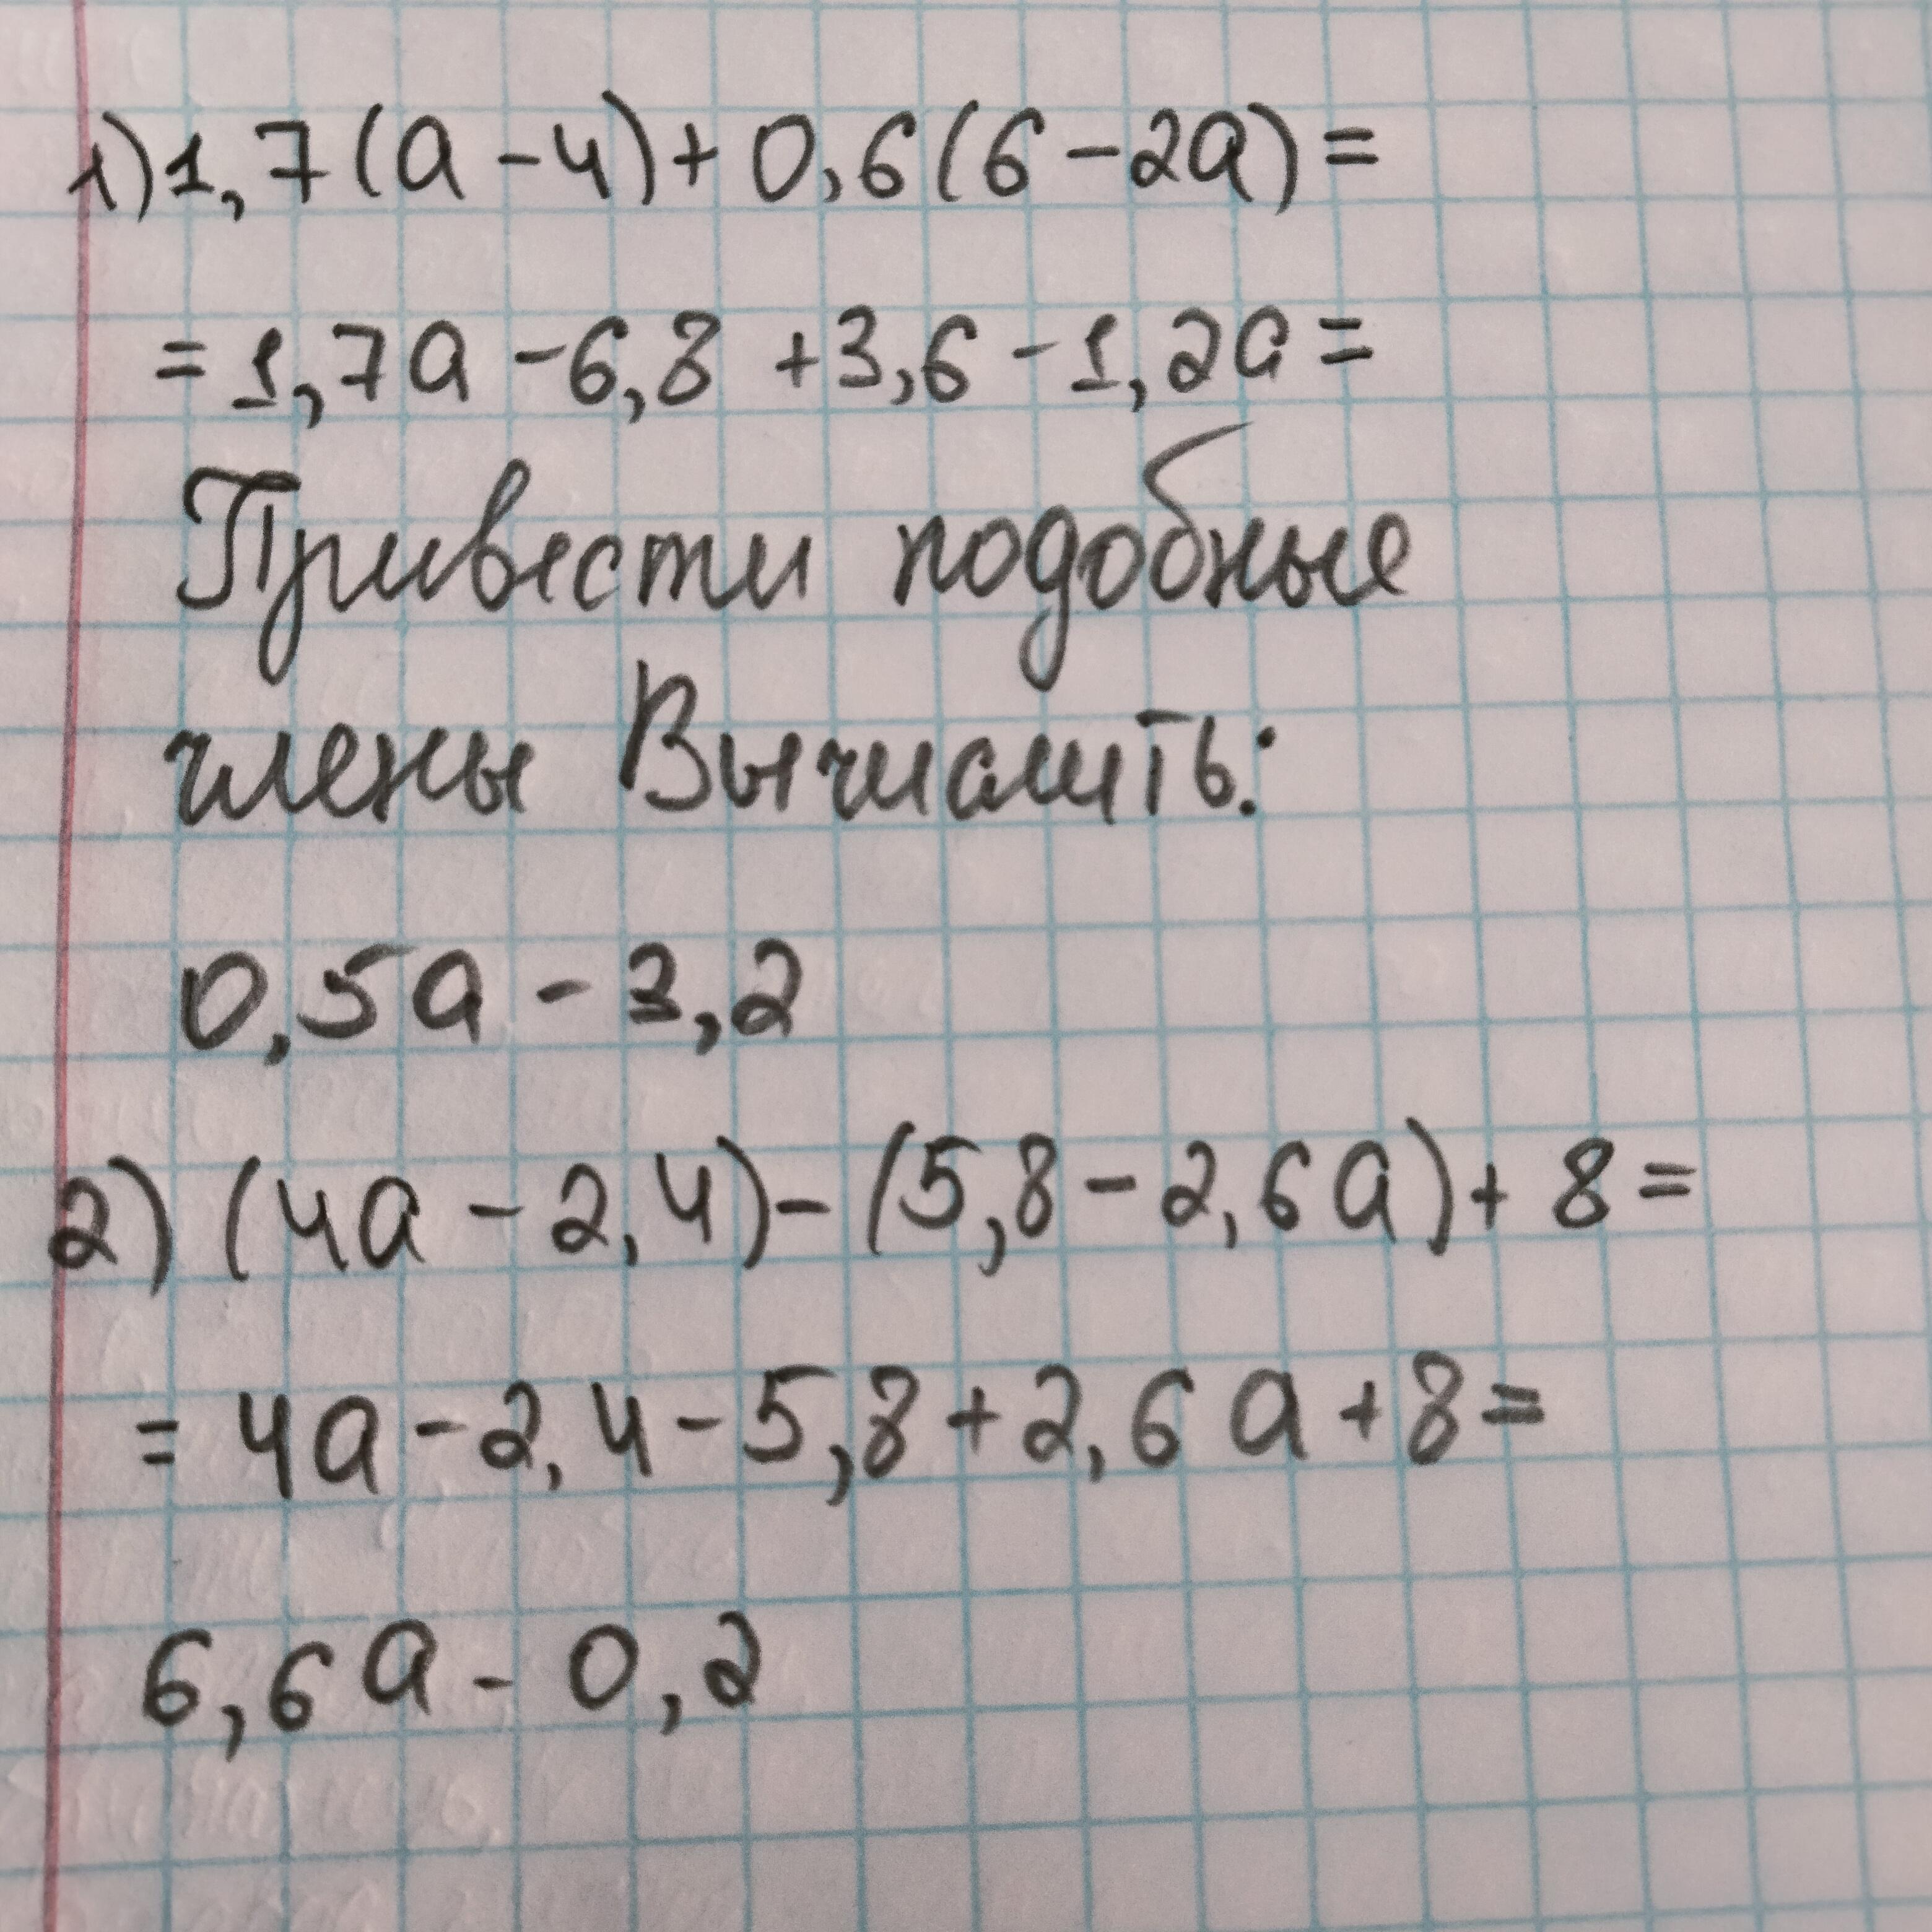 1) 1,7(a - 4) + 0,6(6 - 2a) =
= 1,7a - 6,8 + 3,6 - 1,2a =
Привести подобные
члены Вычислить:
0,5a - 3,2
2) (4a - 2,4) - (5,8 - 2,6a) + 8 =
= 4a - 2,4 - 5,8 + 2,6a + 8 =
6,6a - 0,2